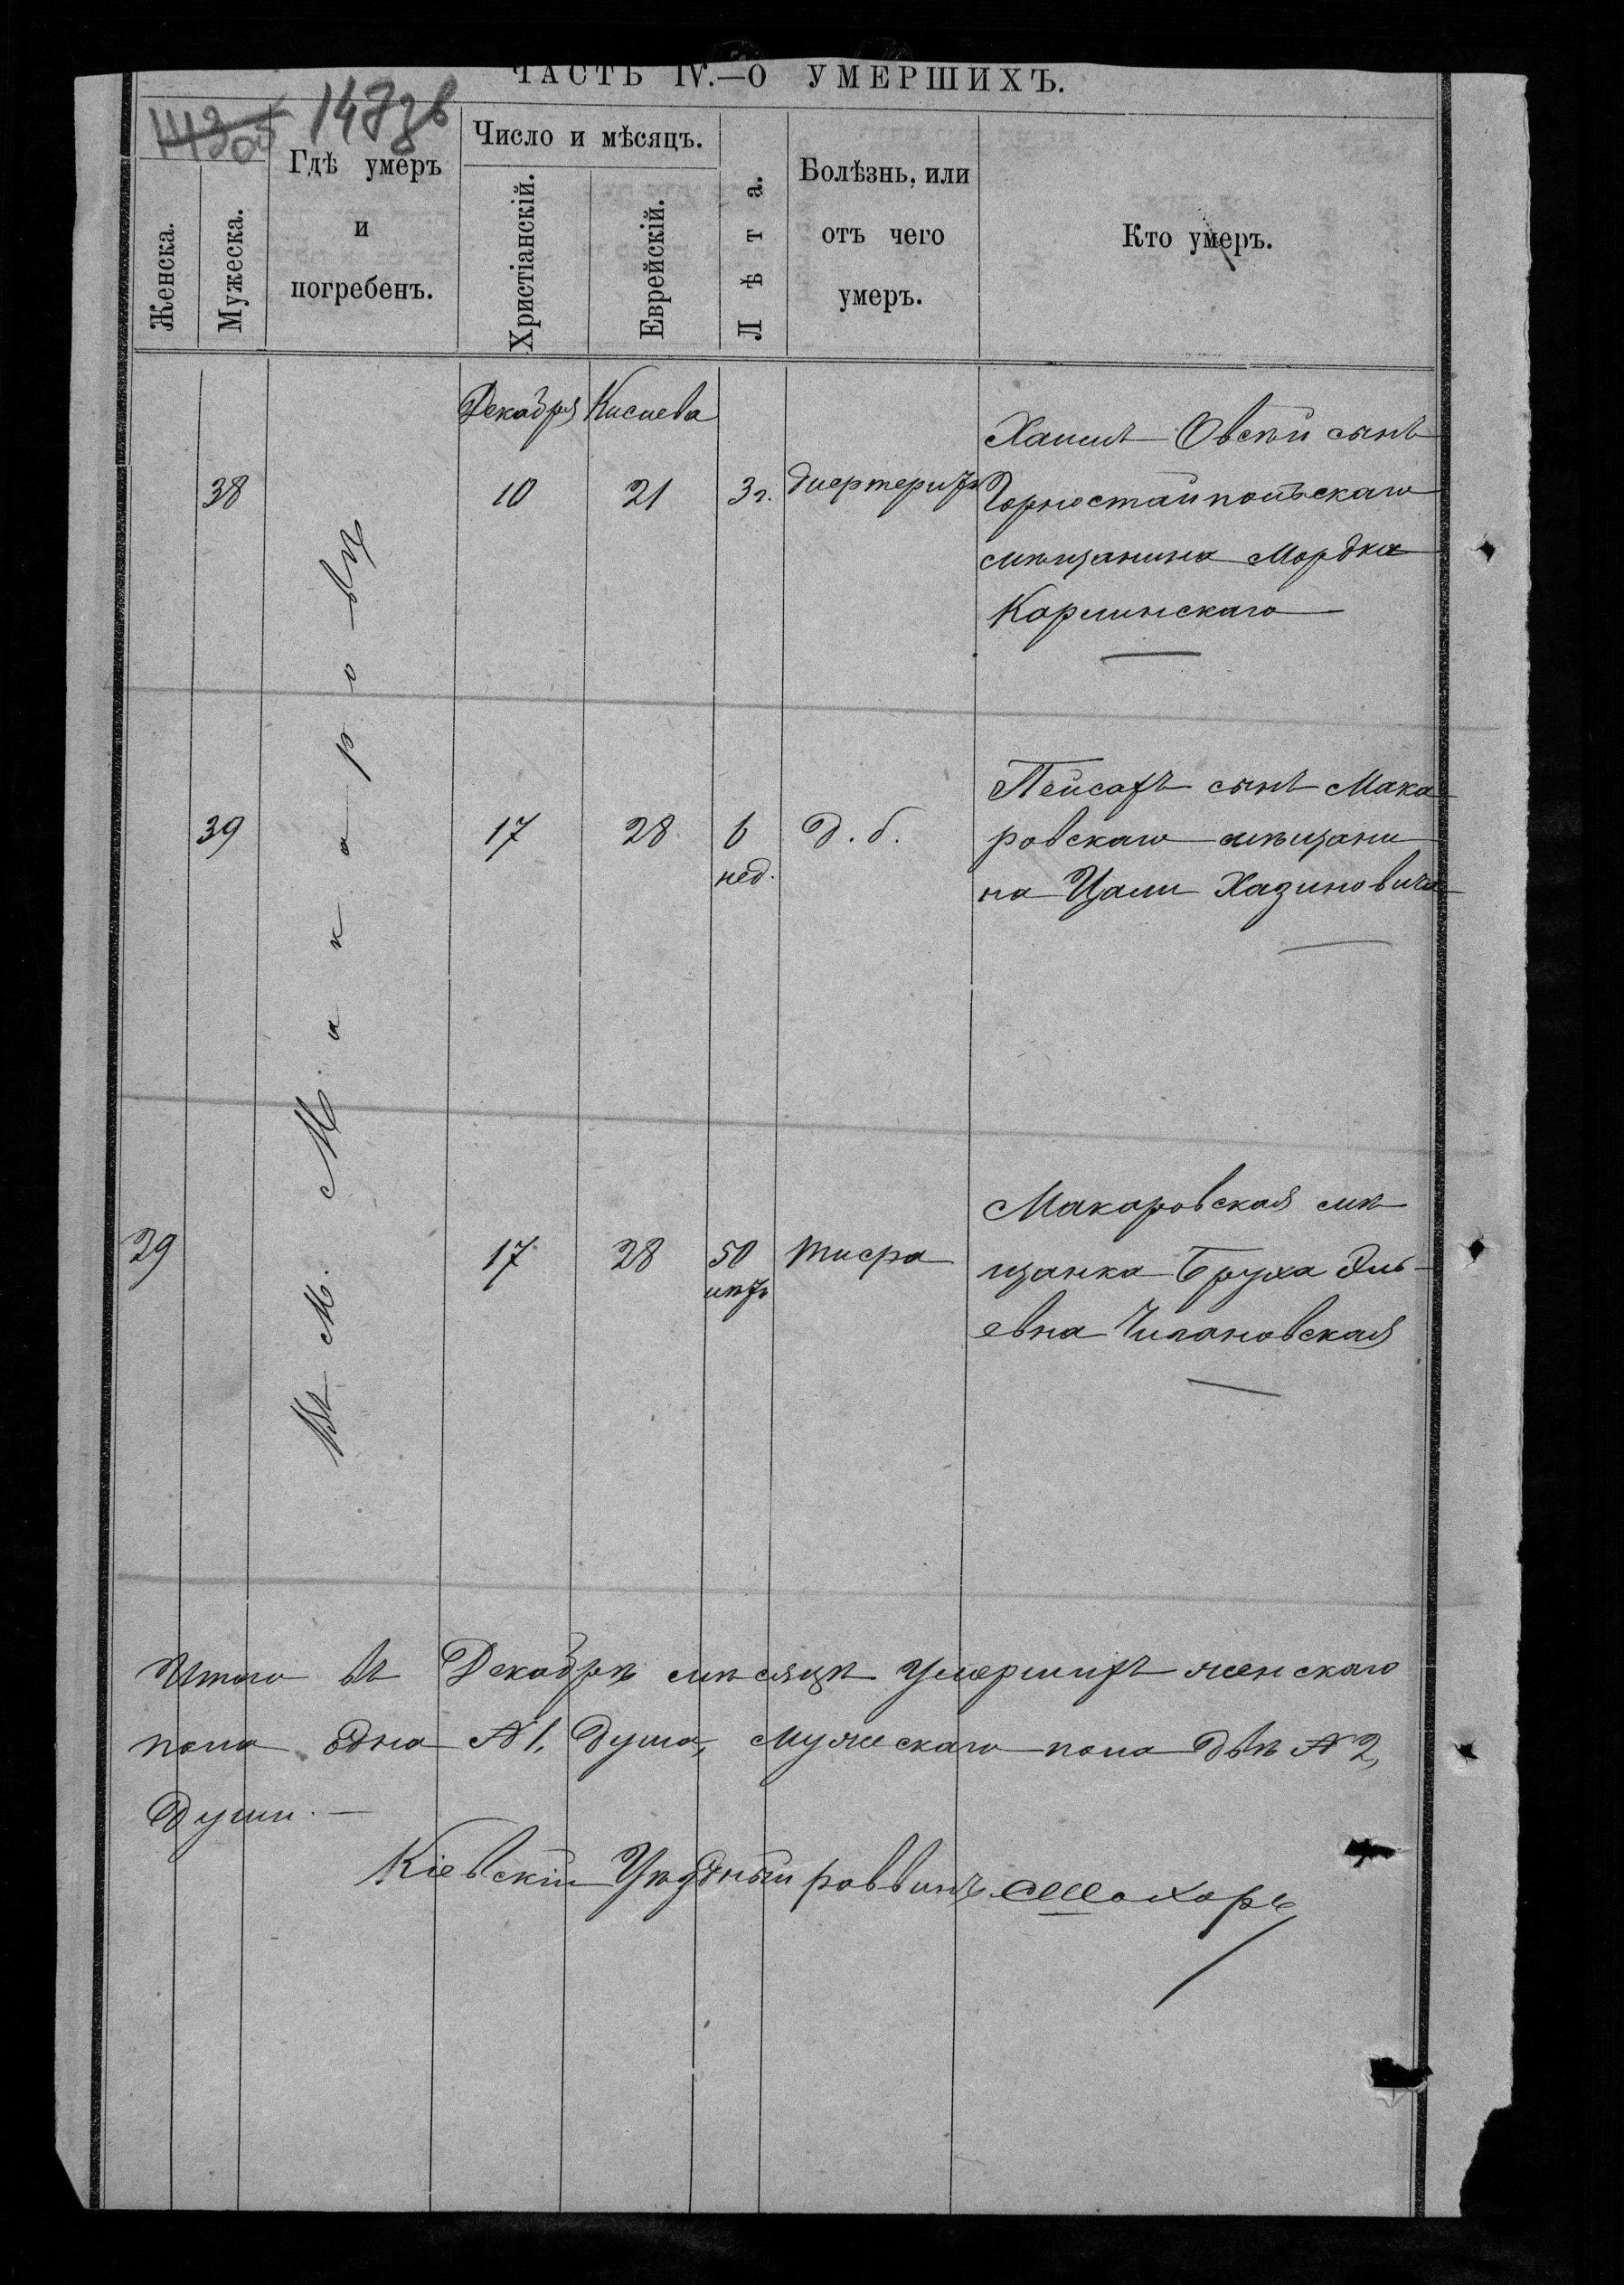 ЧАСТЬ IV.—О УМЕРШИХЪ.
Женска.
Мужеска.
Гдѣ умеръ
и
погребенъ.
Число и мѣсяцъ.
Христіанскій.
Еврейскій.
Лѣта.
Болѣзнь, или
отъ чего
умеръ.
Кто умеръ.
Въ М. Макаровѣ
Декабря Кислева
38 10 21 3 г. дифтеритъ
Овсѣй сынъ
Горностайпольскаго
мѣщанина Мордка
Карлинскаго
39 17 28 6 нед. Д. б.
Пейсахъ сынъ Мака
ровскаго мѣщани
на Цали Хазиновича
29 17 28 50 лѣтъ тифа
Макаровская мѣ
щанка Бруха Эль-
евна Чипановская
Итого въ Декабрѣ мѣсяцѣ умершихъ женскаго
пола одна №1, душа, мужескаго пола двѣ №2,
души.—
Кіевскій Уѣздный раввинъ